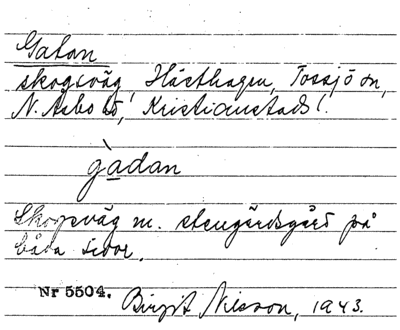 Gatan
skogsväg, Hästhagen, Tossjö sn,
N. Åsbo hd, Kristianstads l.
gàdan
Skogsväg m. stengärdsgård på
båda sidor.
Nr 5504. Birgit Nilsson, 1943.